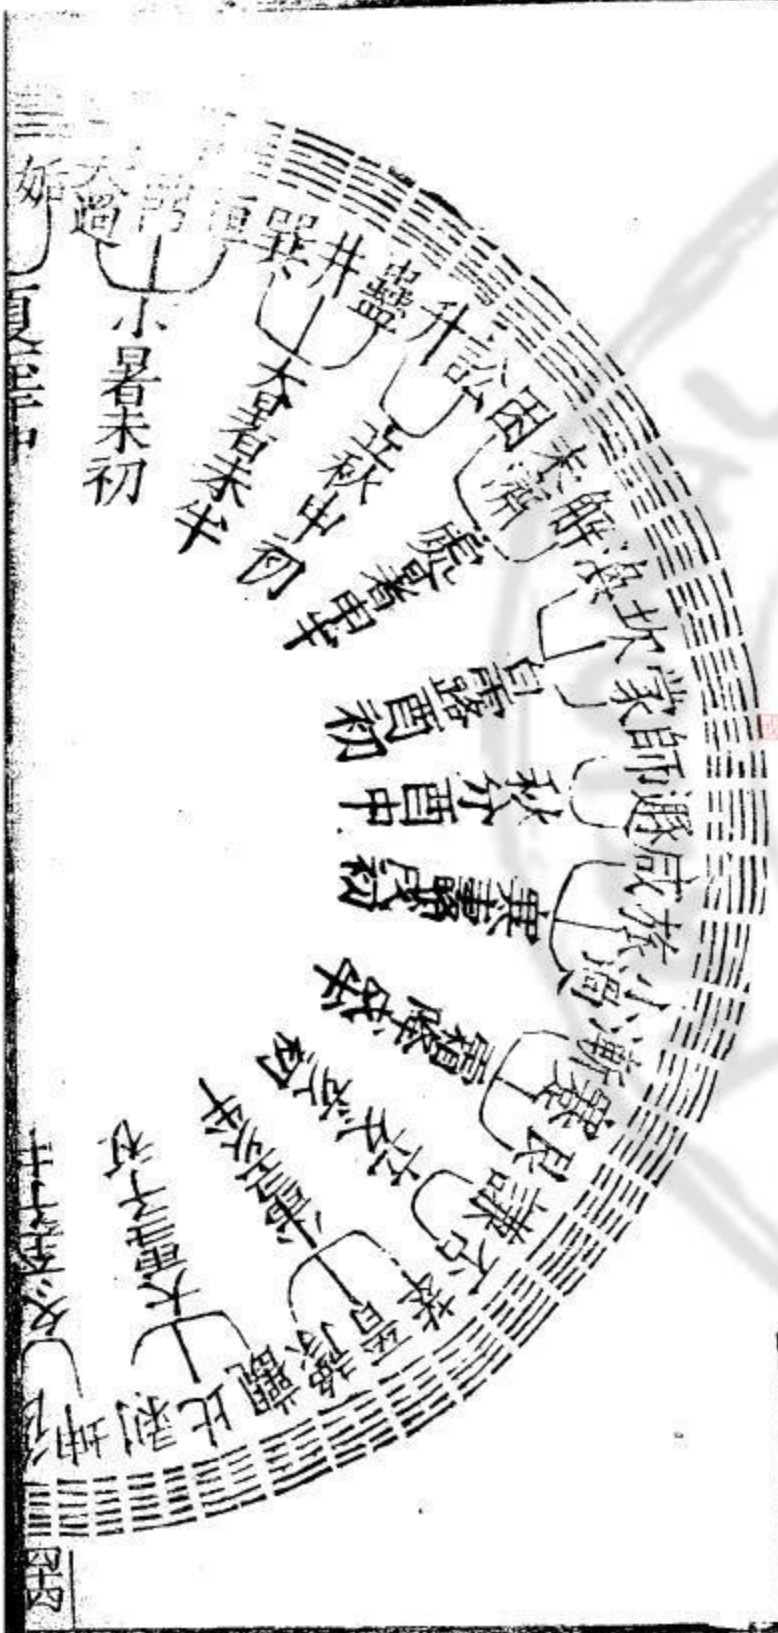 姤
大過
鼎
恒
巽
井
蠱
升
訟
困
未濟
解
渙
坎
蒙
師
遯
咸
旅
小過
漸
蹇
艮
謙
否
萃
晉
豫
觀
比
剥
坤
復
夏至午中
小暑未初
大暑未半
立秋申初
處暑申半
白露酉初
秋分酉中
寒露戌初
霜降戌半
立冬亥初
小雪亥半
大雪子初
冬至子半